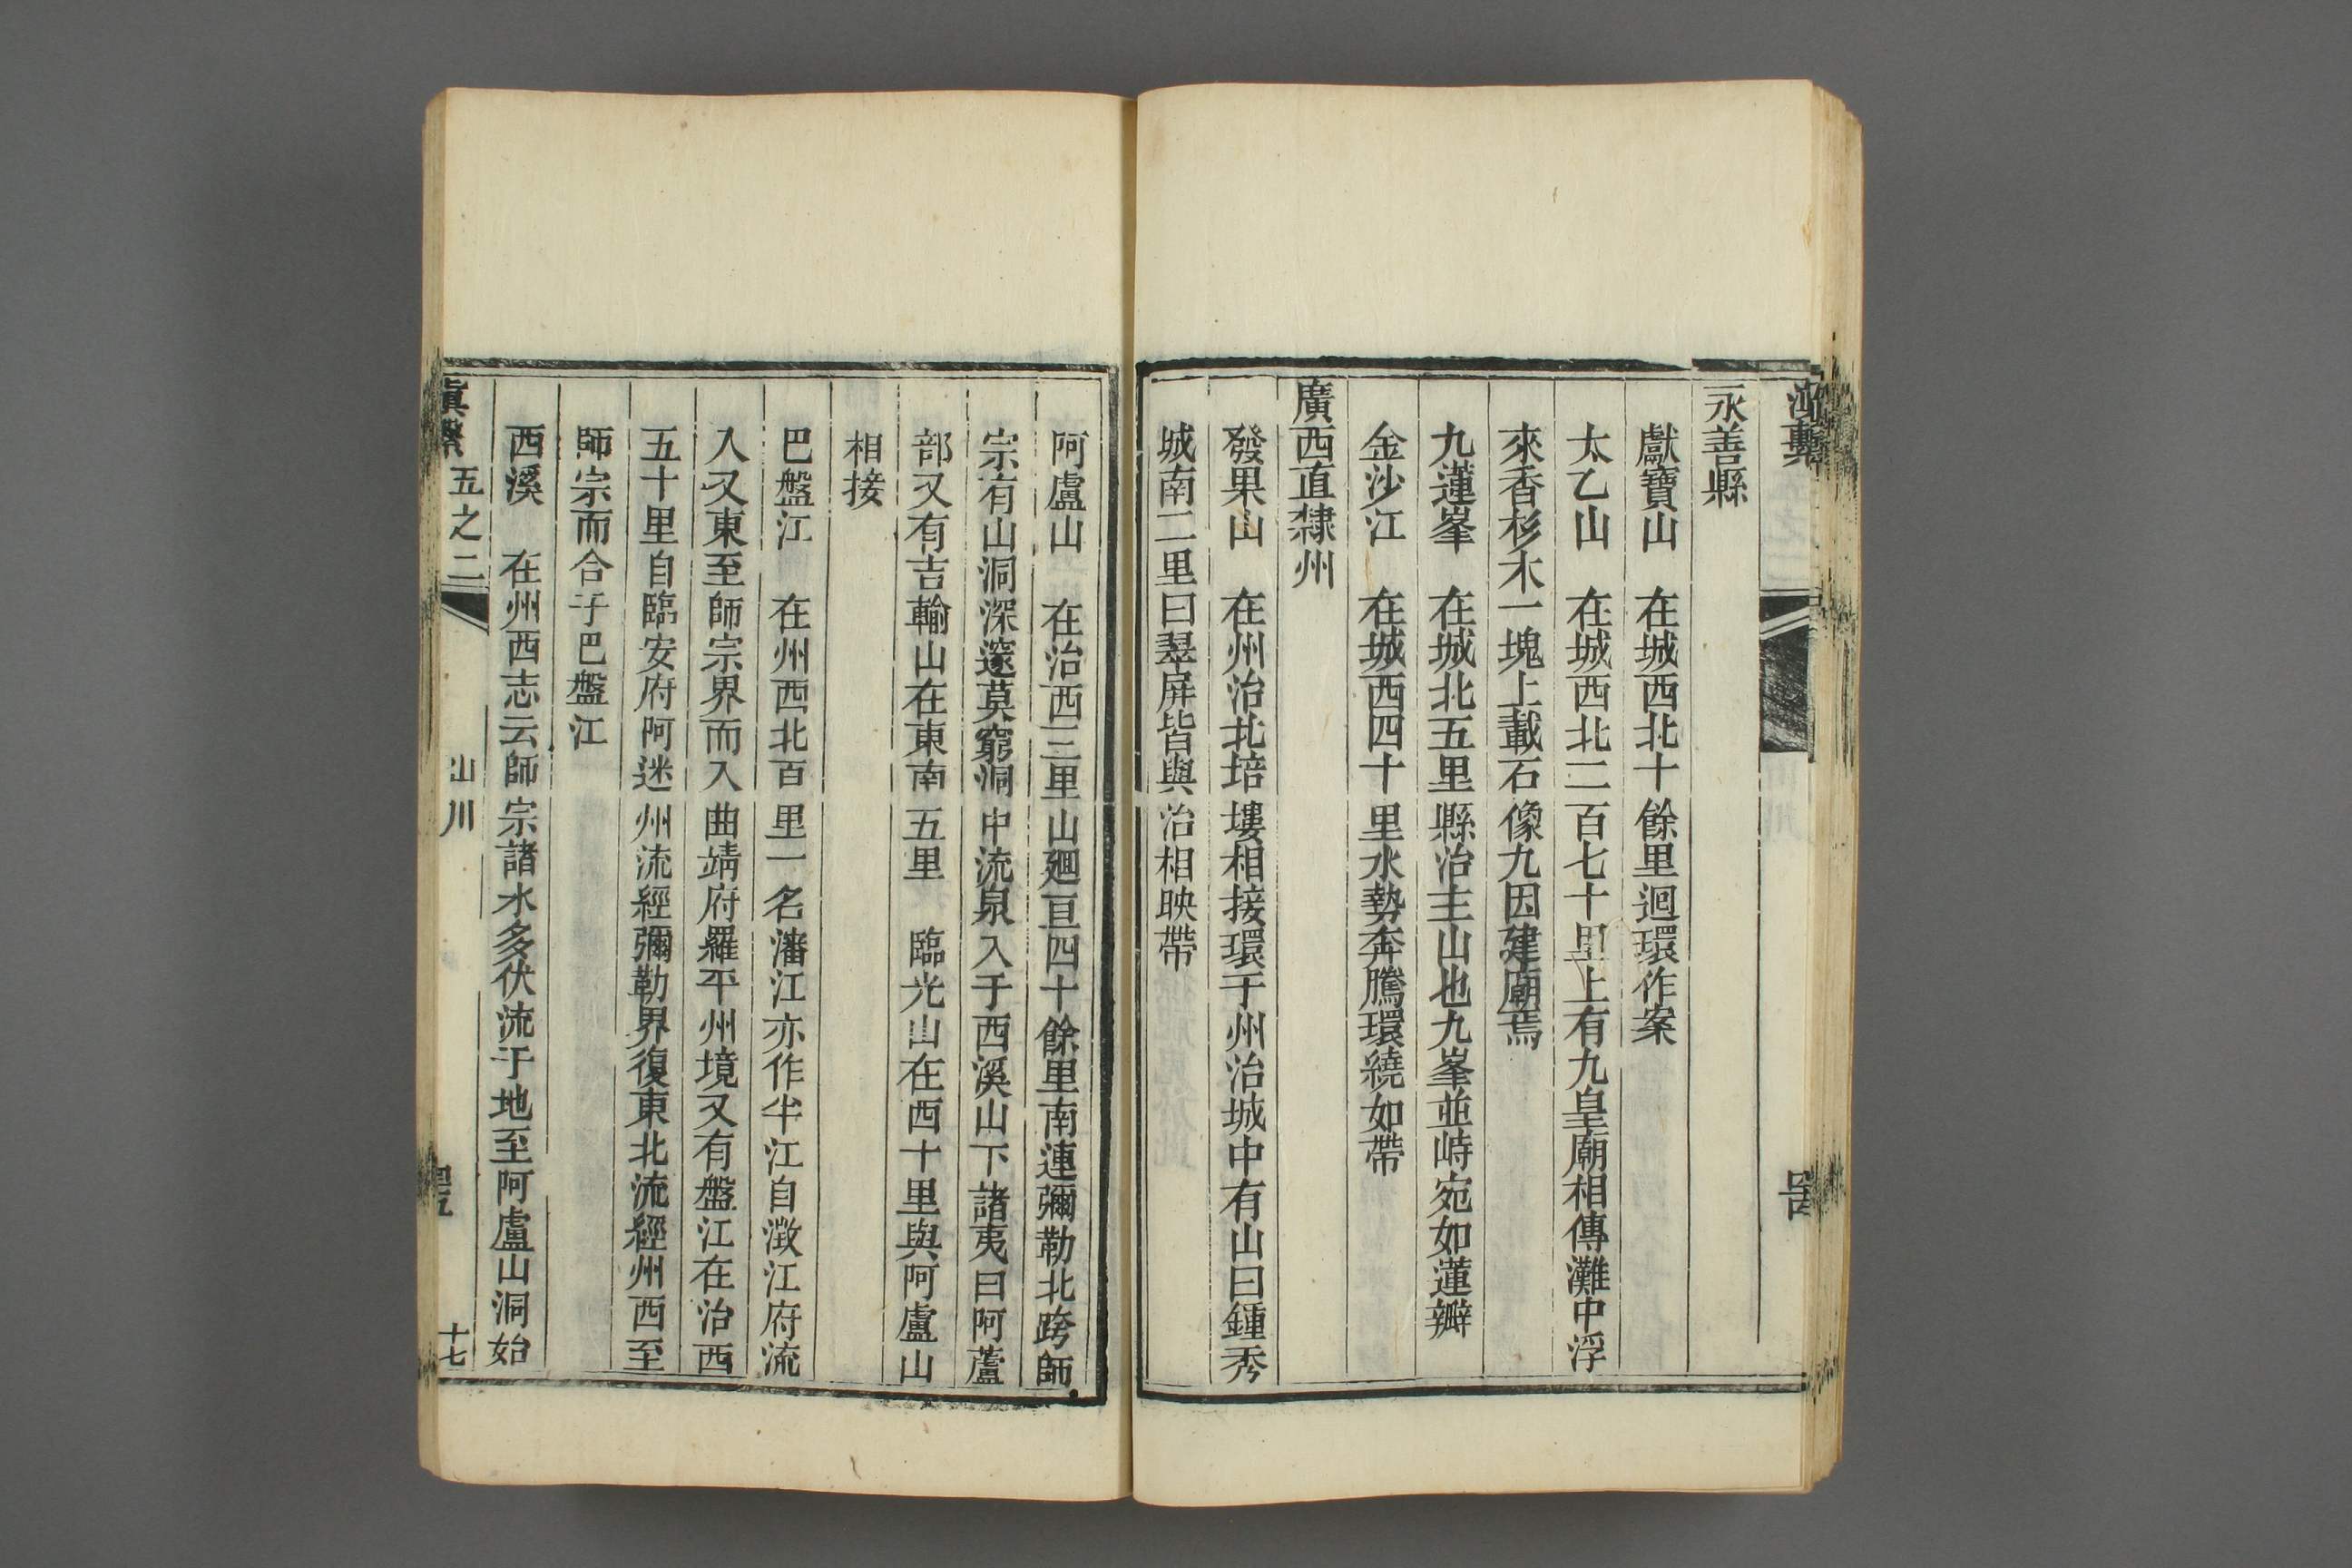 永善縣
獻寶山　在城西北十餘里迴環作案
太乙山　在城西北二百七十里上有九皇廟相傳灘中浮
來香杉木一塊上載石像九因建廟焉
九蓮峯　在城北五里縣治主山也九峯並峙宛如蓮瓣
金沙江　在城西四十里水勢奔騰環繞如帶
廣西直隸州
發果山　在州治北培塿相接環于州治城中有山曰鍾秀
城南二里曰翠屏皆與治相映帶
阿盧山　在治西三里山廻亘四十餘里南連彌勒北跨師
宗有山洞深邃莫窮洞中流泉入于西溪山下諸夷曰阿蘆
部又有吉輸山在東南五里　臨光山在西十里與阿盧山
相接
巴盤江　在州西北百里一名潘江亦作半江自澂江府流
入又東至師宗界而入曲靖府羅平州境又有盤江在治西
五十里自臨安府阿迷州流經彌勒界復東北流經州西至
師宗而合于巴盤江
西溪　在州西志云師宗諸水多伏流于地至阿盧山洞始
滇繫　五之二　山川　十七